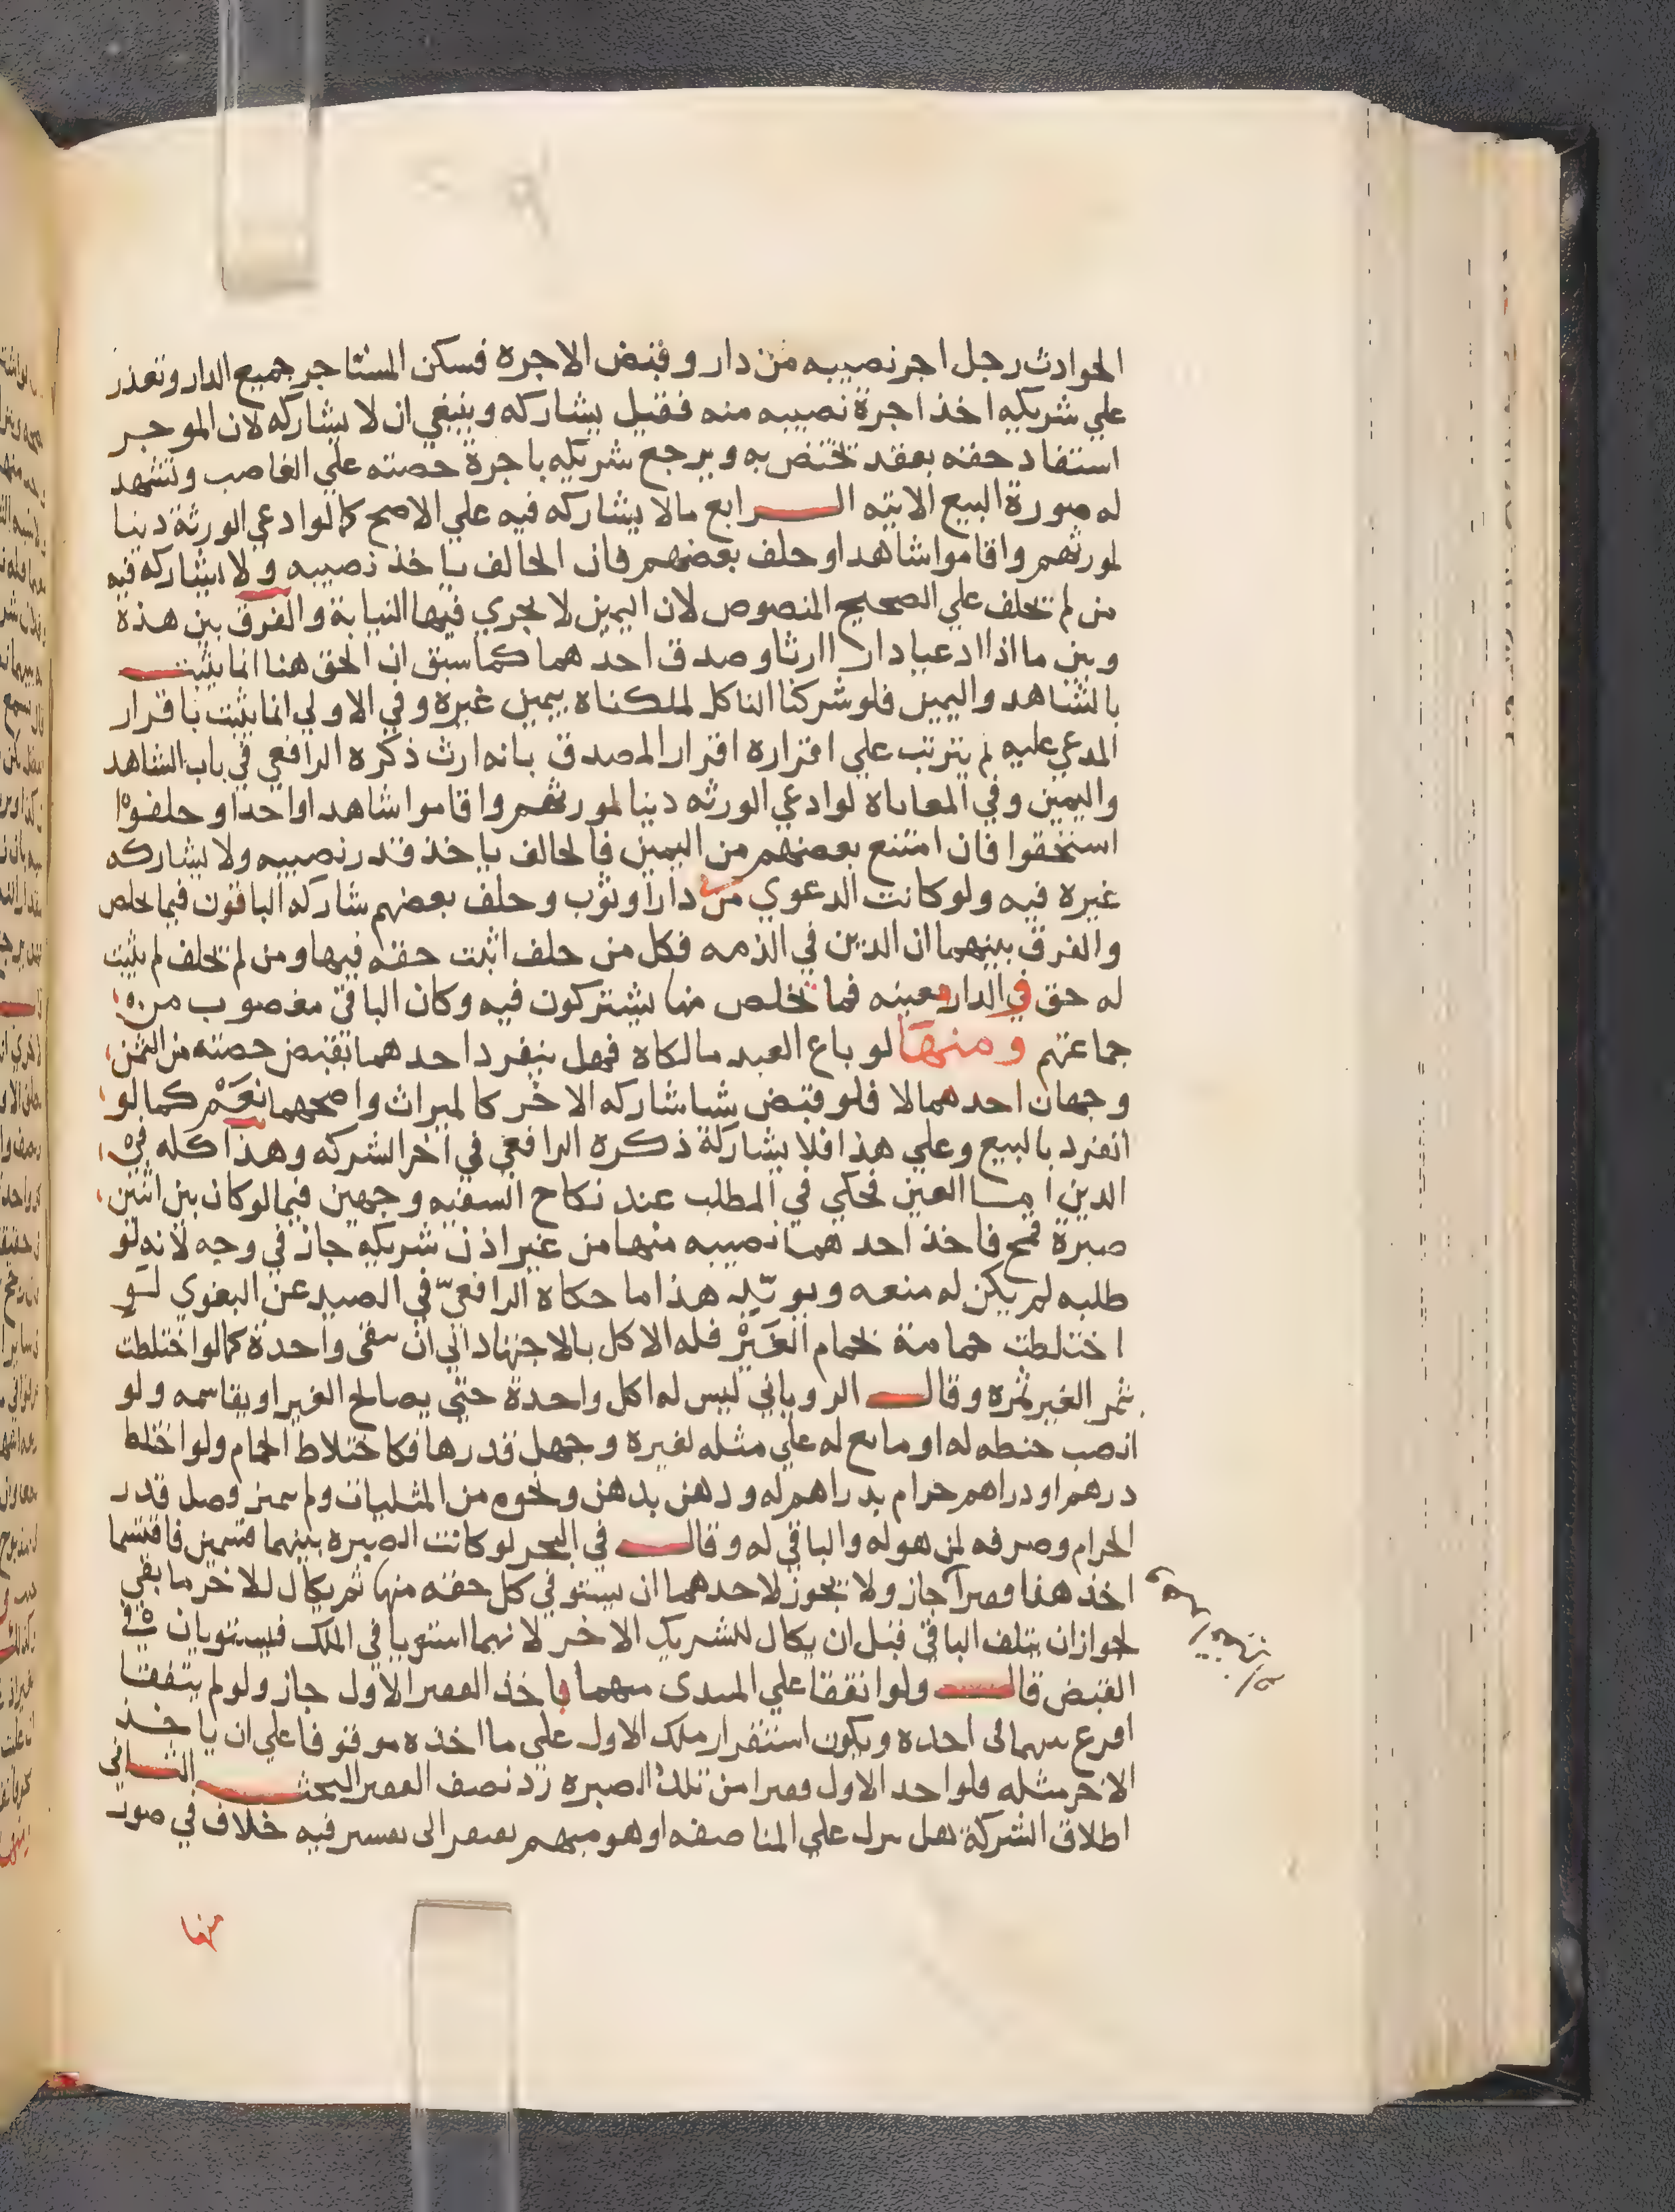 الحوادث رجل اجر نصيبه من دار وقبض الاجرة فسكن المستاجر جميع الدار وتعذر
علي شريكه اخذ اجرة نصيبه منه فقيل يشاركه وينبغي ان لا يشاركه لان الموجر
استفاد حقه بعقد تختص به ويرجع شريكه باجرة حصته علي الغاصب وتشهد
له صورة البيع الاتيه الرابع مالا يشاركه فيه علي الاصح كما لو ادعي الورثة دينا
لمورثهم واقاموا شاهدا وحلف بعضهم فان الحالف ياخذ نصيبه ولا يشاركه فيه
من لم تحلف علي الصحيح المنصوص لان اليمين لا يجري فيها النيابة والفرق بين هذة
وبين ما اذا ادعيا دارا ارثا وصدق احدهما كما سبق ان الحق هنا انما يثبت
بالشاهد واليمين فلو شركنا الناكل لملكناه بيمين غيرة وفي الاولي انما يثبت باقرار
المدعي عليه ثم يترتب علي اقراره اقرار المصدق بانه ارث ذكره الرافعي في باب الشاهد
واليمين وفي المعاياة لو ادعي الورثه دينا لمورثهم واقاموا شاهدا واحدا وحلفوا
استحقوا فان امتنع بعضهم من اليمين فالحالف ياخذ قدر نصيبه ولا يشاركه
غيره فيه ولو كانت الدعوي من دار او ثوب وحلف بعضهم شاركه الباقون فيما يخلص
والفرق بينهما ان الدين في الذمه فكل من حلف اثبت حقه فيها ومن لم تحلف لم يثبت
له حق في الدار معينه فما تخلص منها يشتركون فيه وكان الباقي مغصوب من
جماعتهم ومنها لو باع العبد مالكاه فهل ينفرد احدهما بقبض حصته من الثمن
وجهان احدهما لا فلو قبض شيا شاركه الاخر كالميراث واصحهما نعم كما لو
انفرد بالبيع وعلي هذا فلا يشاركة ذكره الرافعي في اخر الشركه وهذا كله في
الدين اما العين فحكي في المطلب عند نكاح السفيه وجهين فيما لو كان بين اثنين
صبرة قمح فاخذ احدهما نصيبه منها من غير اذن شريكه جاز في وجه لانه لو
طلبه لم يكن له منعه ويويّده هذا ما حكاة الرافعي في الصيد عن البغوي لو
اختلطت حمامة بحمام الغير فله الاكل بالاجتهاد الي ان تبقى واحدة كما لو اختلطت
ثمر الغير بثمره وقال الروياني ليس له اكل واحدة حتي يصالح الغير او يقاسمه ولو
انصب حنطه له او مايع له علي مثله لغيرة وجهل قدرها فكاختلاط الحمام ولو اختلط
درهم او دراهم حرام بدراهم له ودهن بدهن ونحوه من المثليات ولم يتميز وصل قدر
الحرام وصرفه لمن هو له والباقي له وقال في البحر لو كانت الصبره بينهما فاقتسما
اخذ هذا قفيزا جاز ولا تجوز لاحدهما ان يستوفي كل حقه منها ثم يكال للاخر ما بقي
لجواز ان يتلف الباقي قبل ان يكال للشريك الاخر لانهما استويا في الملك فليستويان في
القبض قال ولو اتفقا علي المبدى منهما ياخذ القفيز الاول جاز ولو لم يتفقا
اقرع بينهما لى اخذه ويكون استقرار ملك الاول علي ما اخذه موقوفا علي ان ياخذ
الاخر مثله فلو اخذ الاول قفيزا من تلك الصبره رد نصف القفيز البحث الثاني
اطلاق الشركة هل ينزل علي المناصفه او هو مبهم يفتقر الى تفسير فيه خلاف في صور
منها